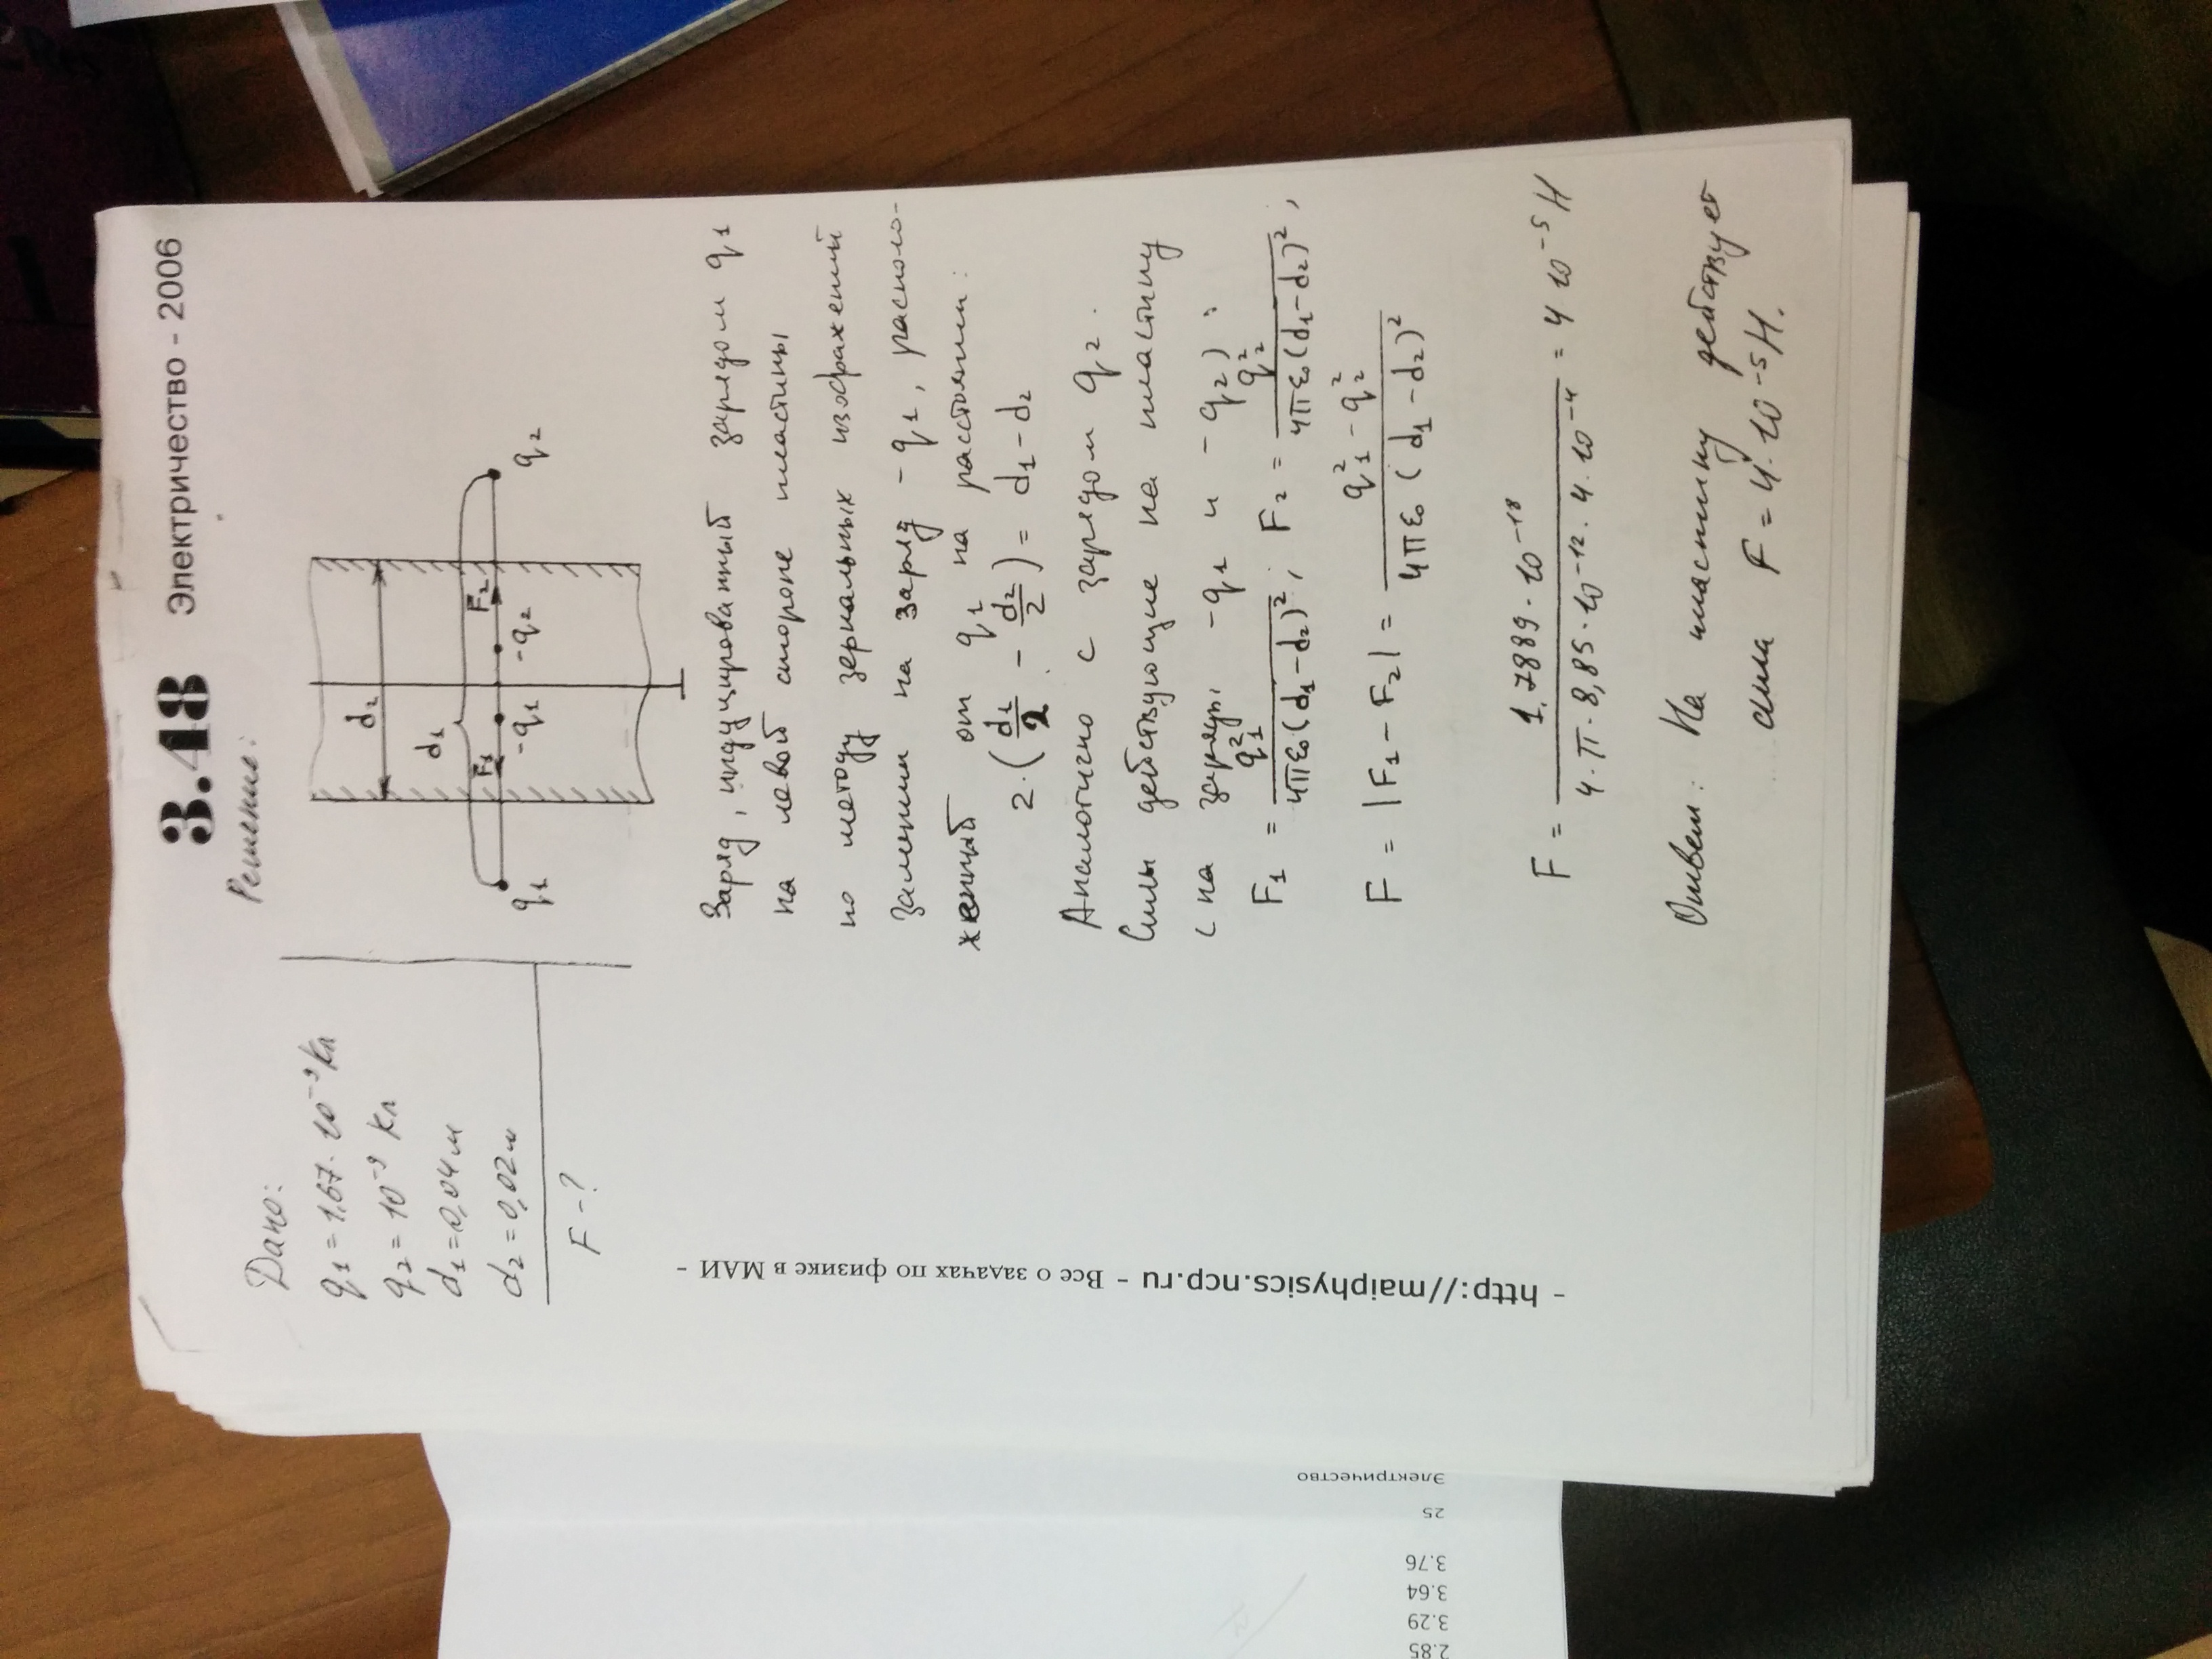 3.48 Электричество - 2006
Дано:
q₁ = 1,67·10⁻⁹ Кл
q₂ = 10⁻⁹ Кл
d₁ = 0,04 м
d₂ = 0,02 м
F - ?
Решение:
d₂
d₁
F₁
F₂
q₁
-q₁
-q₂
q₂
Заряд, индуцированный зарядом q₁
на левой стороне пластины
по методу зеркальных изображений
заменим на заряд -q₁, располо-
женный от q₁ на расстоянии:
2·(d₁/2 - d₂/2) = d₁ - d₂
Аналогично с зарядом q₂.
Силы действующие на пластину
( на заряды -q₁ и -q₂):
F₁ = q₁²/4πε₀(d₁-d₂)²; F₂ = q₂²/4πε₀(d₁-d₂)²;
F = |F₁ - F₂| = q₁² - q₂²/4πε₀(d₁-d₂)²
F = 1,7889·10⁻¹⁸/4·π·8,85·10⁻¹²·4·10⁻⁴ = 4 10⁻⁵ Н
Ответ: На пластину действует
сила F = 4·10⁻⁵ Н.
- http://maiphysics.ncp.ru - Все о задачах по физике в МАИ -
2.85
3.29
3.64
3.76
25
Электричество